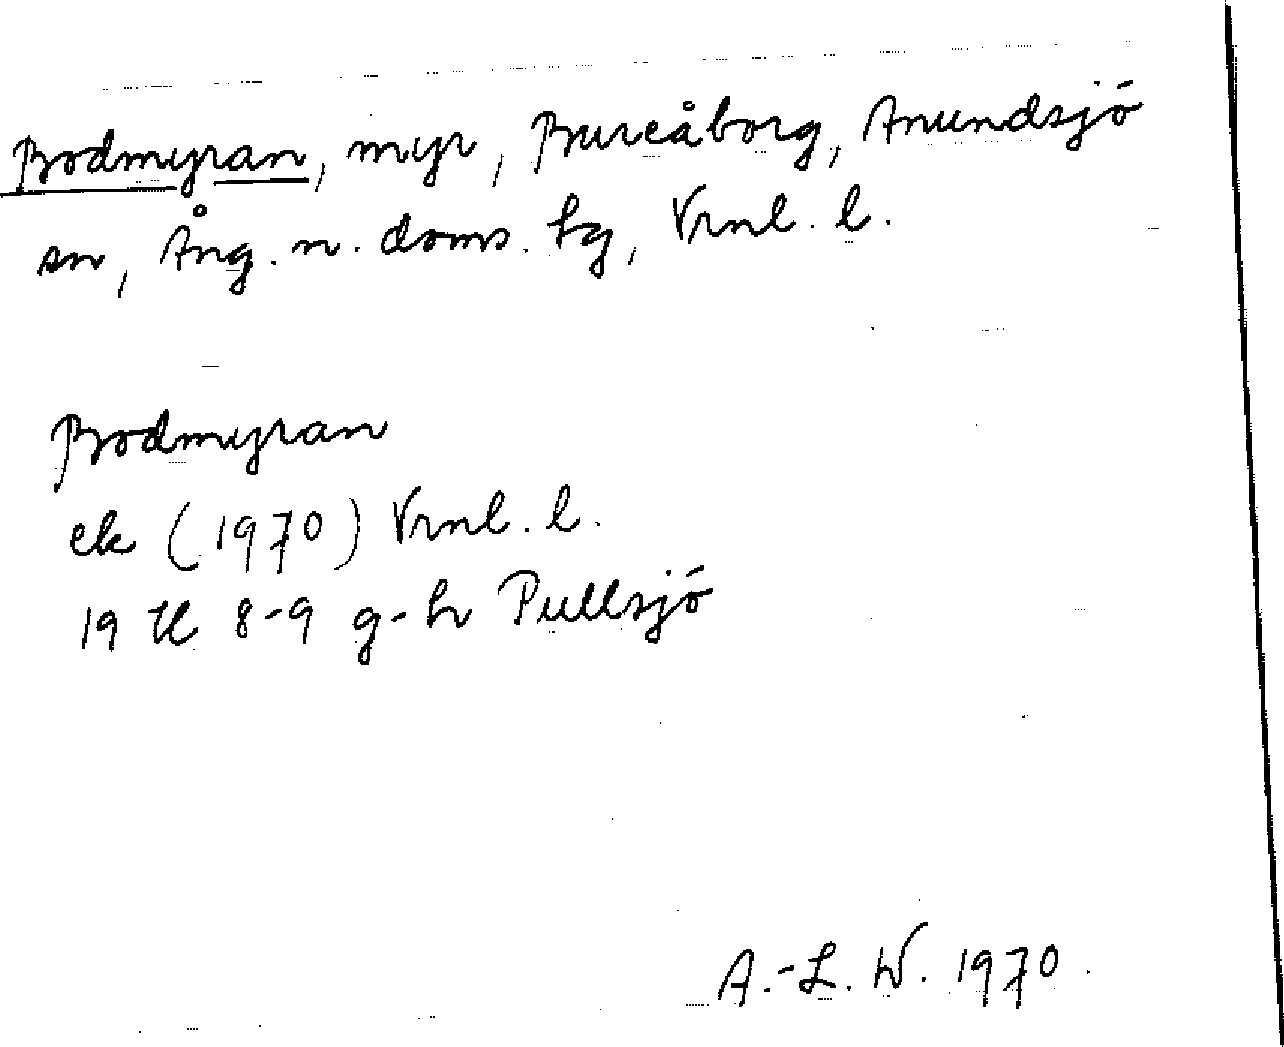 Bodmyran, myr, Bureåborg, Anundsjö
sn, Ång. n. doms. tg, Vrnl. l.
Bodmyran
ek (1970) Vrnl. l.
19 H 8-9 g-h Pullsjö
A.-L. W. 1970.